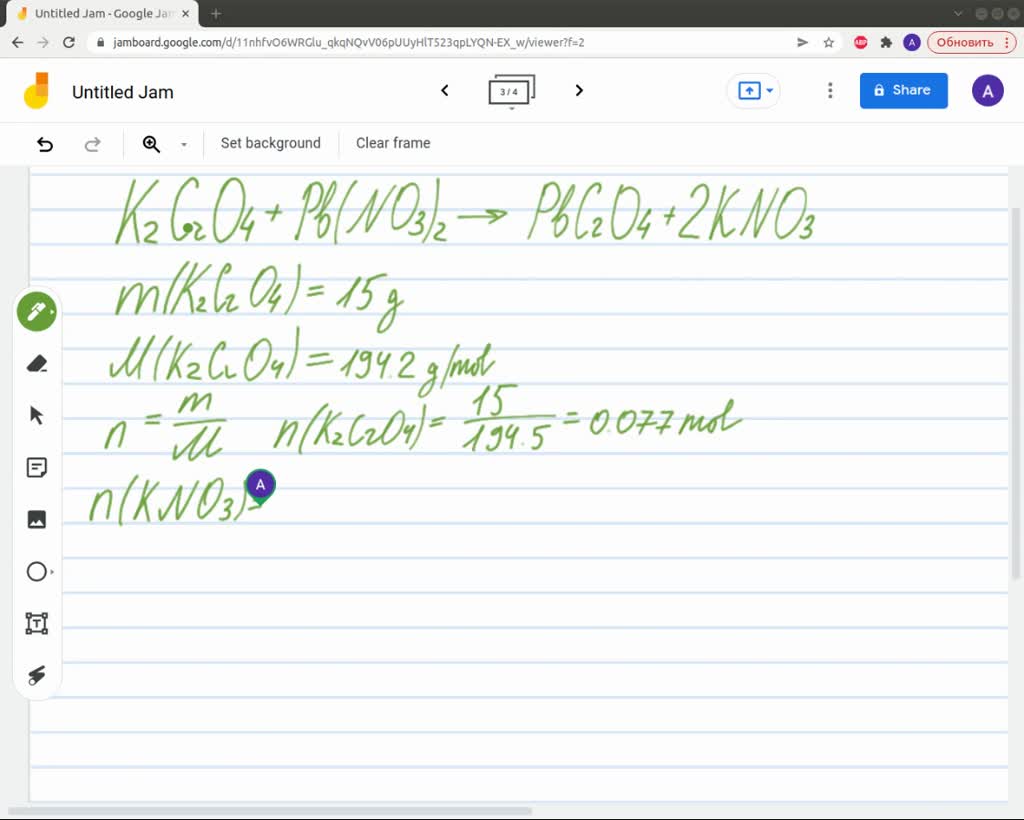 Untitled Jam - Google Jam
jamboard.google.com/d/11nhfvO6WRGlu_qkqNQvV06pUUyHlT523qpLYQN-EX_w/viewer?f=2
ABP
A
Обновить
Untitled Jam
3 / 4
Share
A
Set background
Clear frame
K2CrO4 + Pb(NO3)2 → PbCrO4 + 2KNO3
m(K2CrO4) = 15 g
M(K2CrO4) = 194.2 g/mol
n = m/M n(K2CrO4) = 15/194.5 = 0.077 mol
n(KNO3) =
A